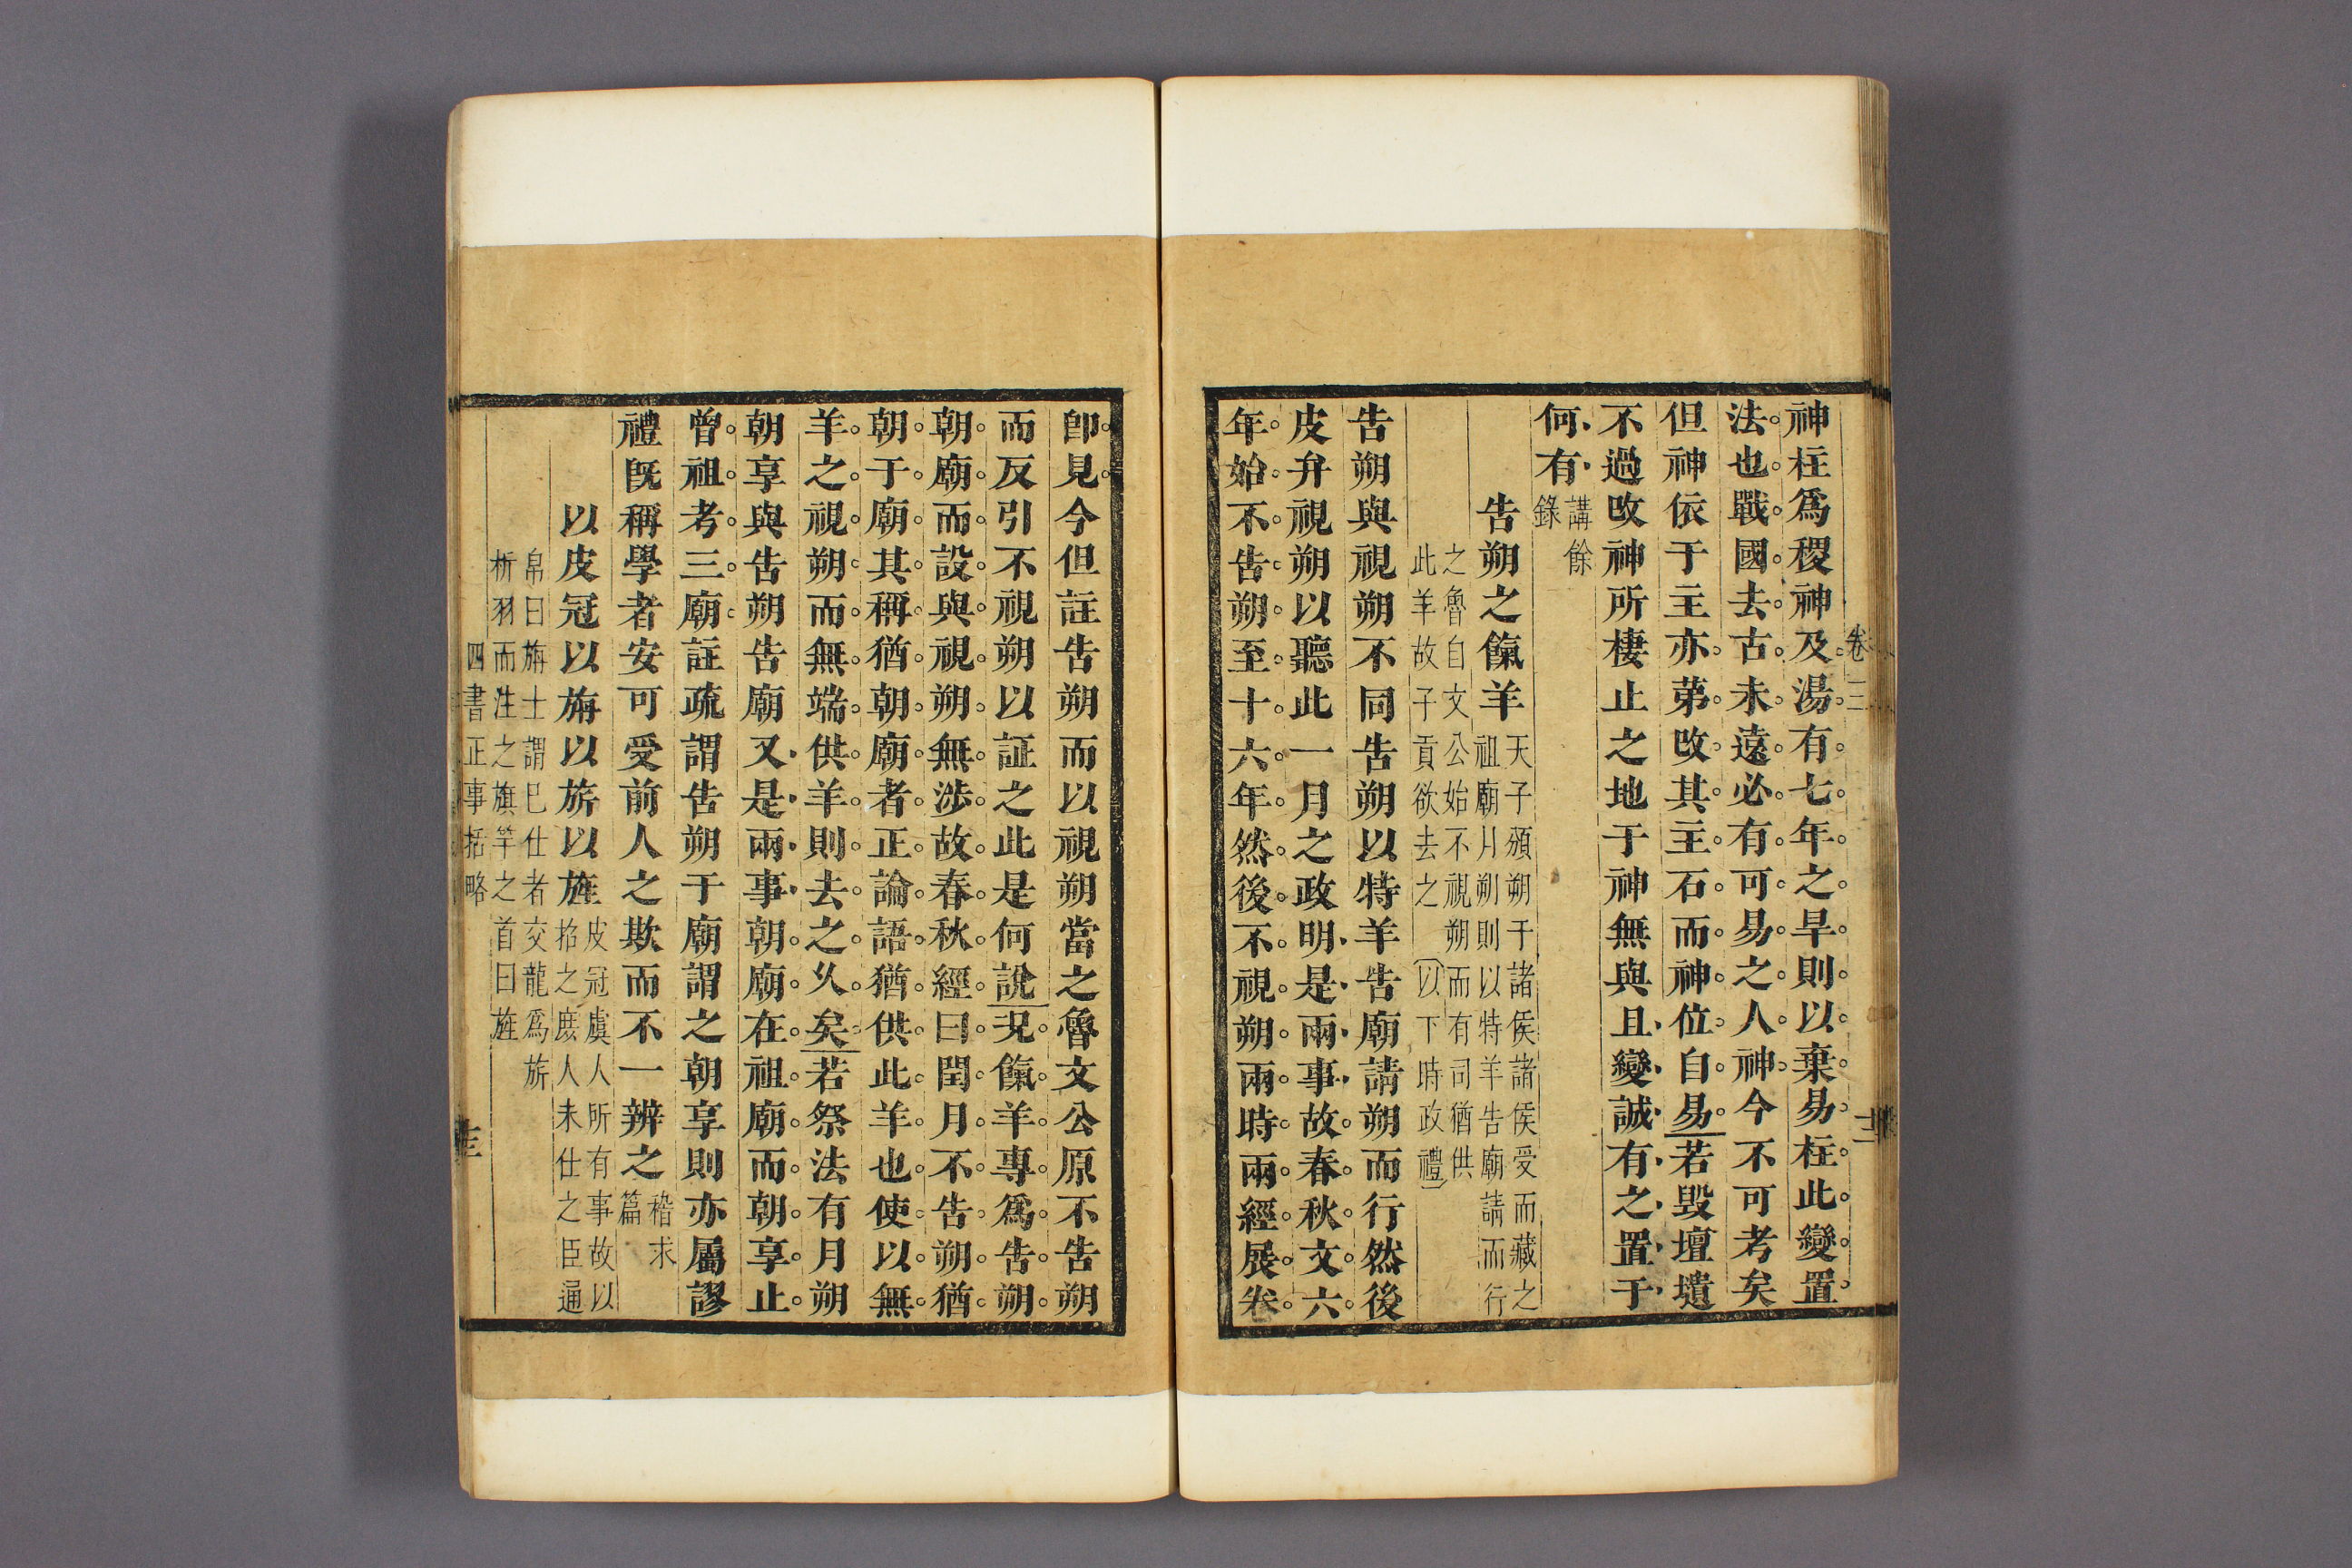 卷三
十二
神柱爲稷神及湯有七年之旱則以棄易柱此變置
法也戰國去古未遠必有可易之人神今不可考矣
但神依于主亦苐改其主石而神位自易若毀壇壝
不過改神所棲止之地于神無與且變誠有之置于
何有講餘錄
告朔之餼羊天子頒朔于諸侯諸侯受而藏之
祖廟月朔則以特羊告廟請而行
之魯自文公始不視朔而有司猶供
此羊故子貢欲去之以下時政禮
告朔與視朔不同告朔以特羊告廟請朔而行然後
皮弁視朔以聽此一月之政明是兩事故春秋文六
年始不告朔至十六年然後不視朔兩時兩經展卷
卽見今但註告朔而以視朔當之魯文公原不告朔
而反引不視朔以証之此是何說况餼羊專爲告朔
朝廟而設與視朔無涉故春秋經曰閏月不告朔猶
朝于廟其稱猶朝廟者正論語猶供此羊也使以無
羊之視朔而無端供羊則去之久矣若祭法有月朔
朝享與告朔告廟又是兩事朝廟在祖廟而朝享止
曾祖考三廟註疏謂告朔于廟謂之朝享則亦屬謬
禮旣稱學者安可受前人之欺而不一辨之稽求篇
以皮冠以旃以旂以旌皮冠虞人所有事故以
招之庶人未仕之臣通
帛曰旃士謂巳仕者交龍爲旂
析羽而注之旗竿之首曰旌
四書正事括略
十三